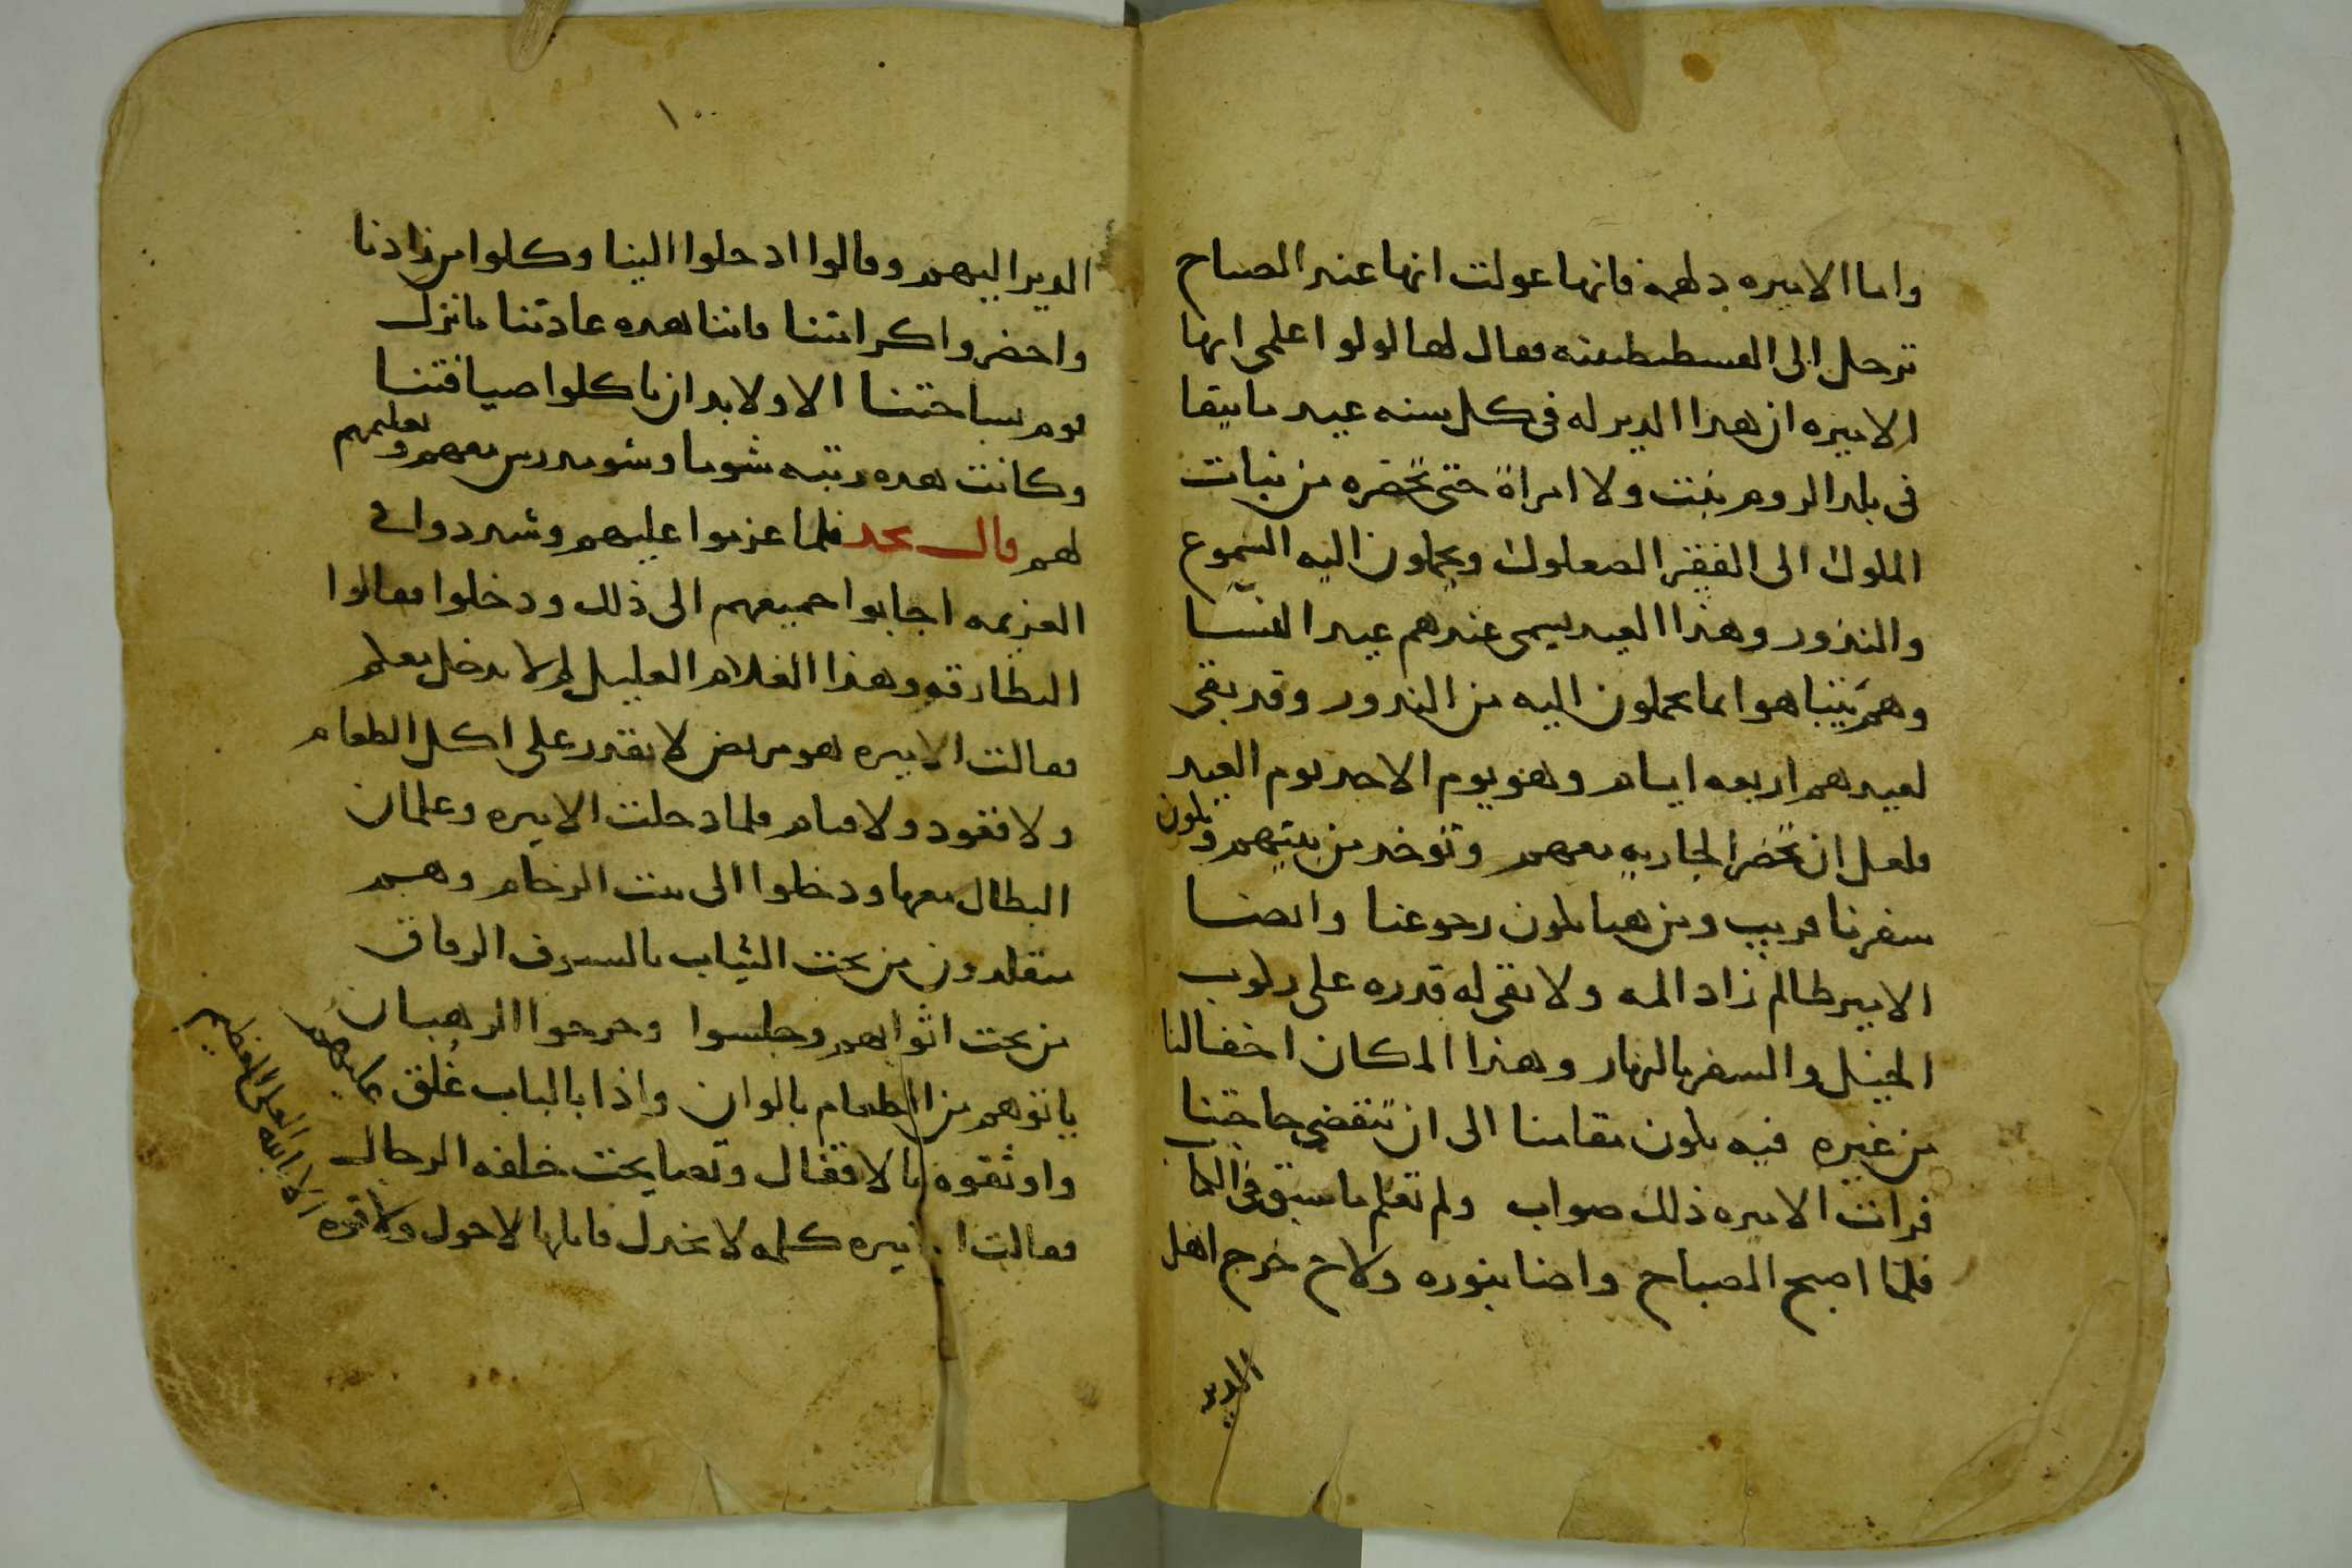 واما الاميره دلهمه فانها عولت انها عند الصباح
ترحل الى القسطنطينه فقال لها لولو اعلمى ايها
الاميره ان هذا الدير له فى كل سنه عيد ما يبقا
فى بلد الروم بنت ولا امراة حتى تحضره من بنات
الملوك الى الفقير الصعلوك ويحملون اليه الشموع
والنذور وهذا العيد يسمى عندهم عيد النسا
وهم يتباهوا بما يحملون اليه من النذور وقد بقى
لعيدهم اربعه ايام وهو يوم الاحد يوم العيد
فلعل ان تحضر الجاريه معهم وتوخد من بينهم ويكون
سفرنا قريب ومن هنا يكون رجوعنا وايضا
الامير ظالم زاد المه ولا بقى له قدره على ركوب
الخيل والسفر بالنهار وهذا المكان اخفا لنا
من غيره فيه يكون مقامنا الى ان تنقضى حاجتنا
فرات الاميره ذلك صواب ولم تعلم ما سبق فى الكتاب
فلما اصبح الصباح واضا بنوره ولاح خرج اهل
الدير
١٠٠
الدير اليهم وقالوا ادخلوا الينا وكلوا من زادنا
واحضروا كرامتنا فاننا هذه عادتنا ما نزل
قوم بساحتنا الا ولابد ان ياكلوا ضيافتنا
وكانت هذه رتبه شوما وشومدرس معهم وتعليمهم
لهم قال نجد فلما عزموا عليهم وشددوا فى
العزيمه اجابوا جميعهم الى ذلك ودخلوا فقالوا
البطارقه وهذا الغلام العليل لم لا يدخل معكم
فقالت الاميره هو مريض لا يقدر على اكل الطعام
ولا قعود ولا قيام فلما دخلت الاميره وغلمان
البطال معها ودخلوا الى بيت الرخام وهم
متقلدون من تحت الثياب بالسيوف الرقاق
من تحت اثوابهم وجلسوا وخرجوا الرهبان
ياتوهم من الطعام بالوان واذا بالباب غُلق عليهم
واوثقوه بالاقفال وتصايحت خلفه الرجال
فقالت الاميره كلمه لا يخذل قايلها لا حول ولا قوه
الا بالله العلى العظيم